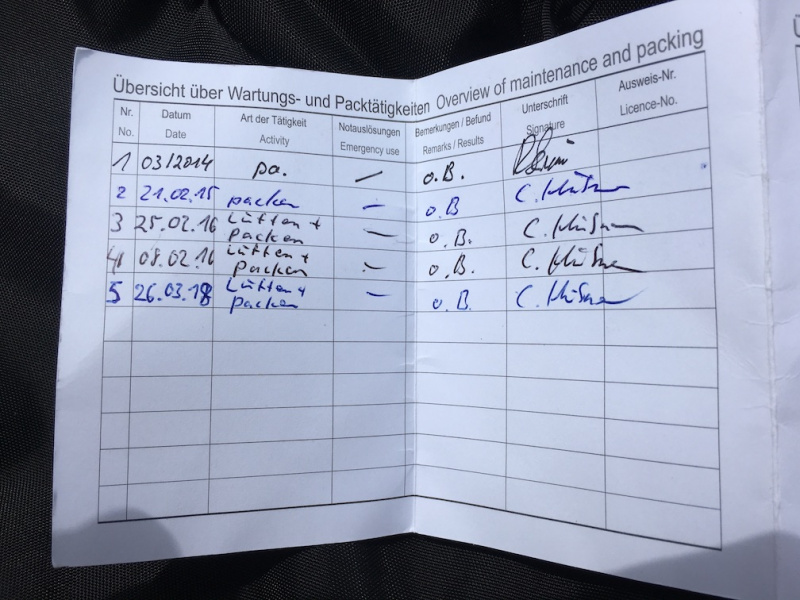 Übersicht über Wartungs- und Packtätigkeiten Overview of maintenance and packing
Nr. Datum Art der Tätigkeit Notauslösungen Bemerkungen / Befund Unterschrift Ausweis-Nr.
No. Date Activity Emergency use Remarks / Results Signature Licence-No.
1 03/2014 pa. — o.B.
2 21.02.15 packen — o.B C.
3 25.02.16 Lüften + packen — o.B. C.
4 08.02.16 Lüften + packen — o.B. C.
5 26.03.18 Lüften + packen — o.B. C.